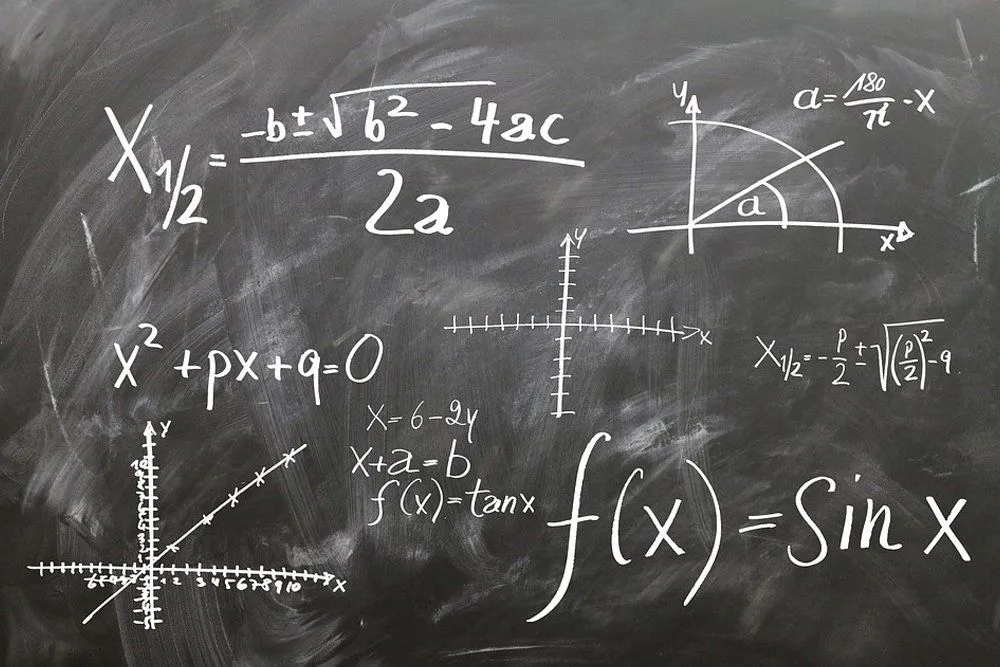 X1/2 = -b±√b² - 4ac / 2a
y
a = 180/π · x
a
x
y
x
x² + px + q = 0
X1/2 = -p/2 ± √(p/2)² - q
x = 6 - 2y
x + a = b
f(x) = tan x
f(x) = Sin x
y
1 2 3 4 5 6 7 8 9 10
x